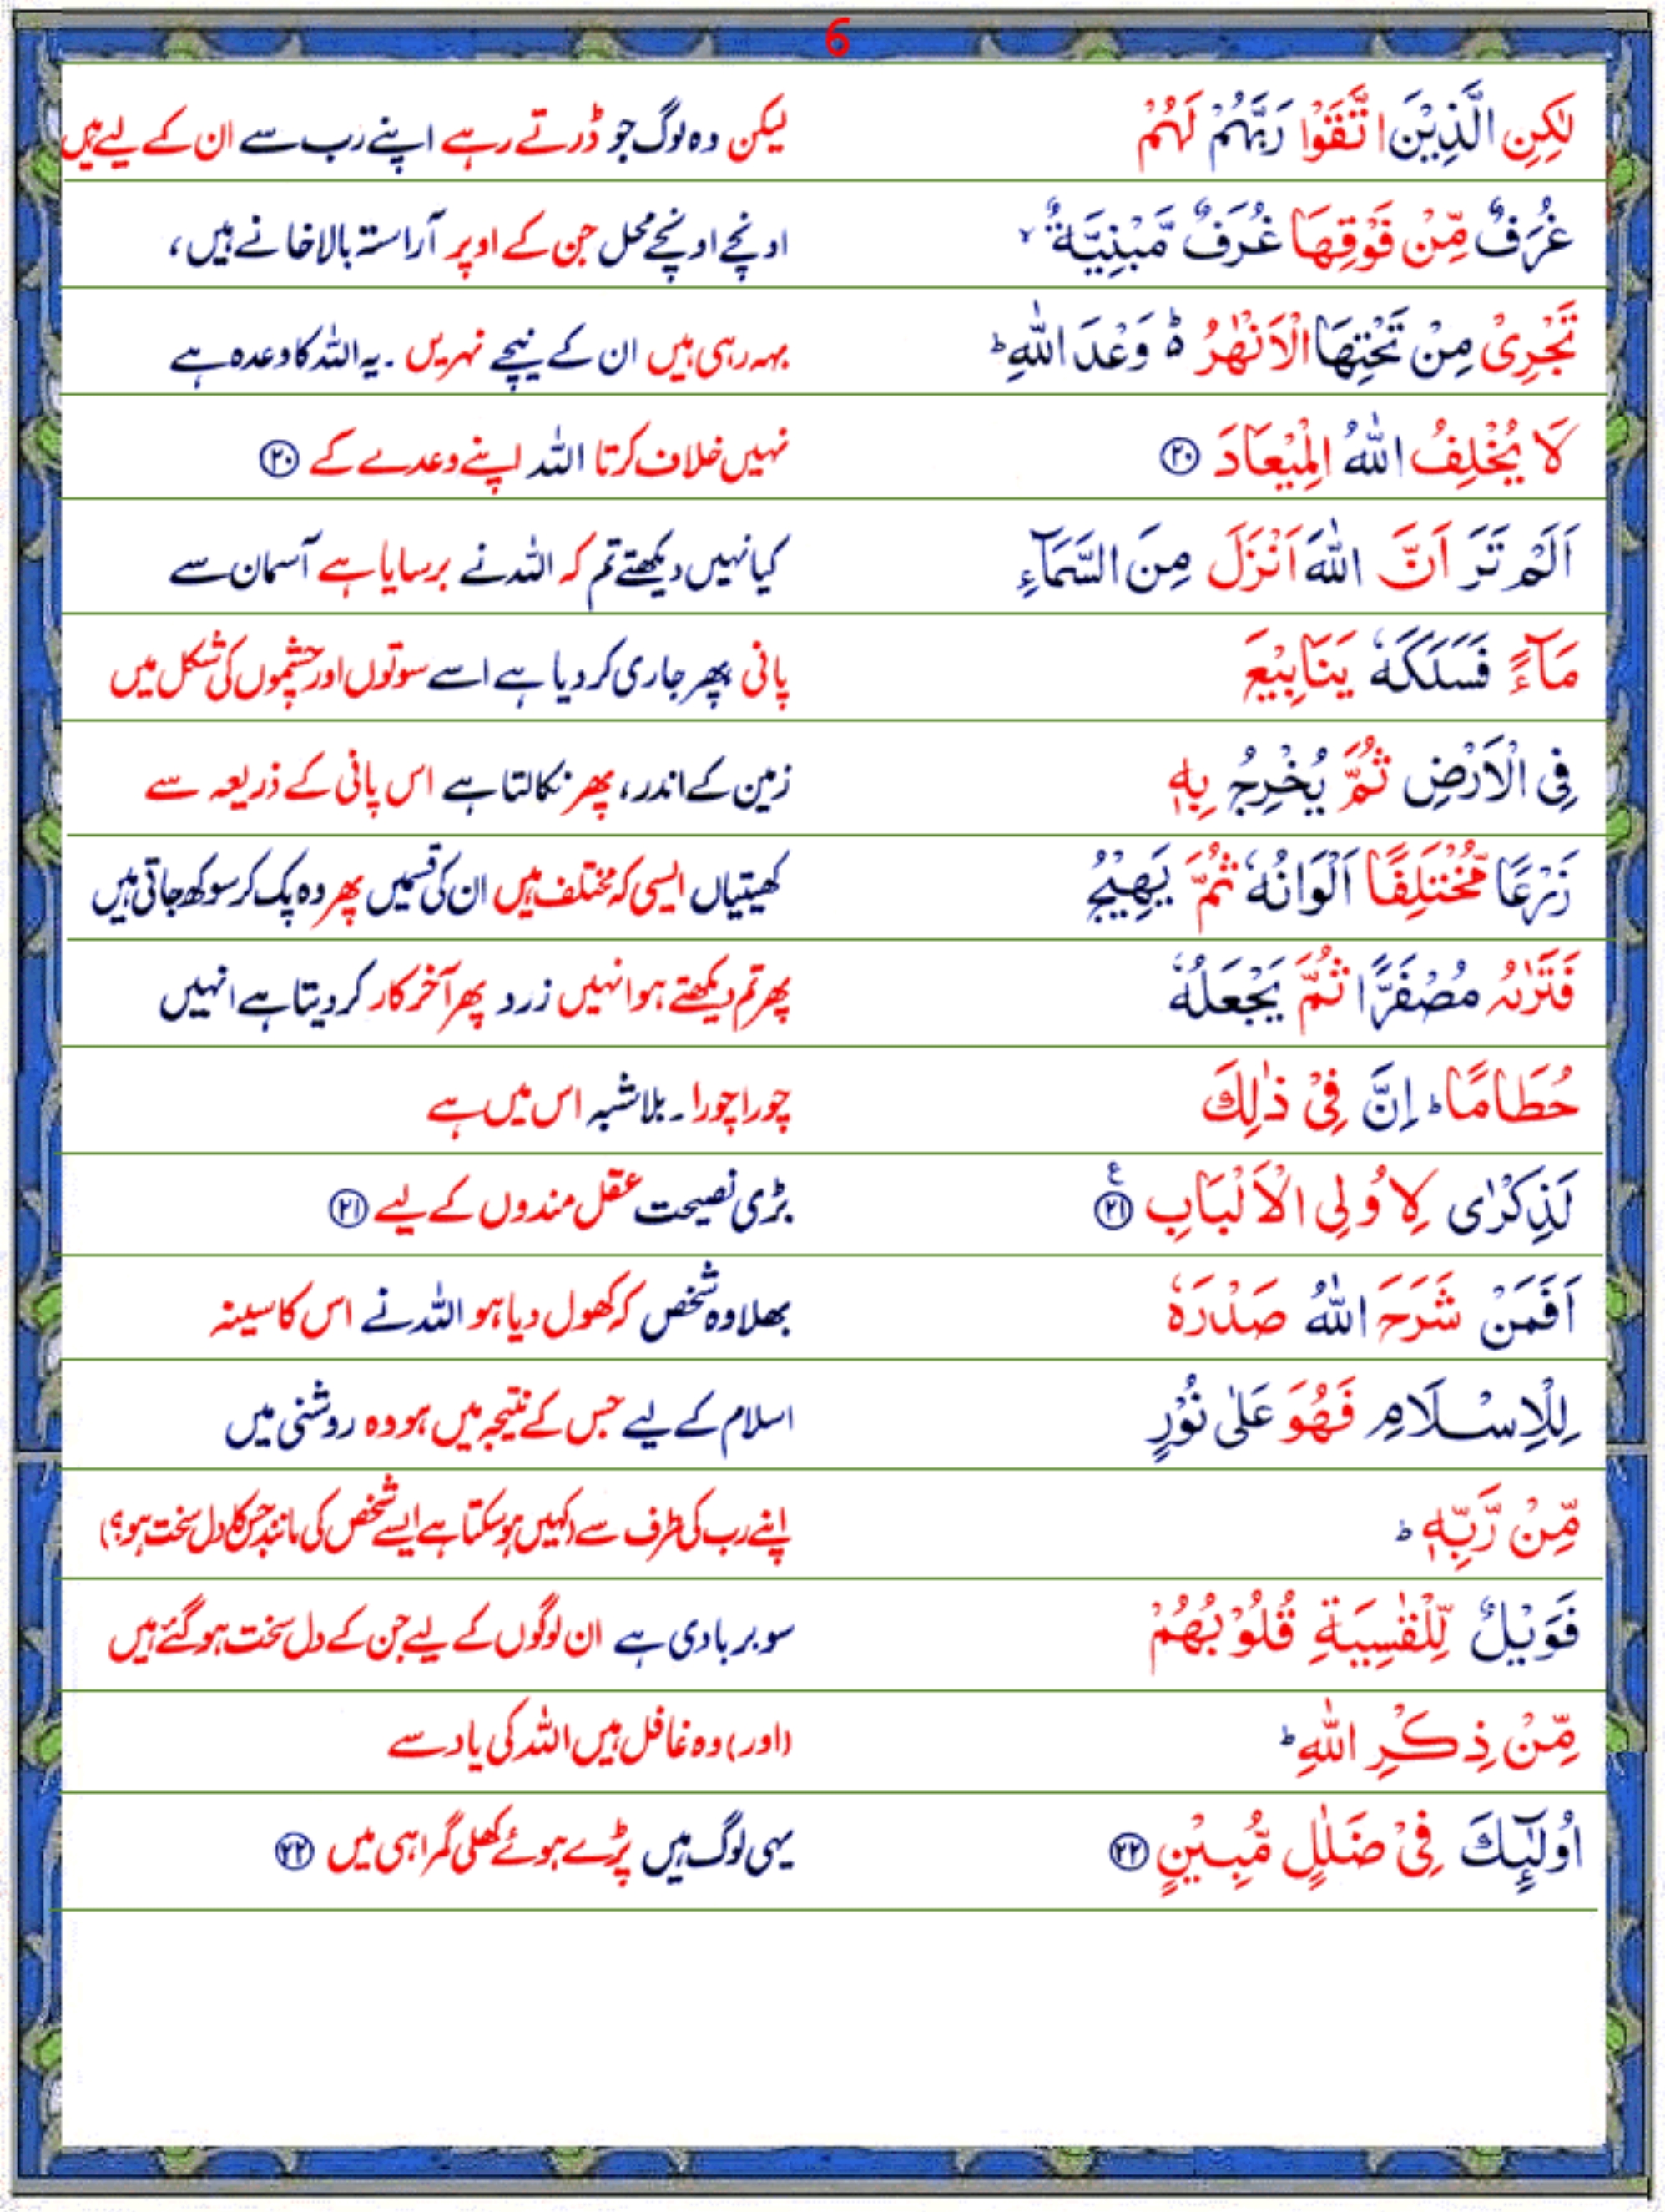 6
لٰكِنِ الَّذِيْنَ اتَّقَوْا رَبَّهُمْ لَهُمْ لیکن وہ لوگ جو ڈرتے رہے اپنے رب سے ان کے لیے ہیں
غُرَفٌ مِّنْ فَوْقِهَا غُرَفٌ مَّبْنِيَّةٌ ۙ اونچے اونچے محل جن کے اوپر آراستہ بالا خانے ہیں،
تَجْرِىْ مِنْ تَحْتِهَا الْاَنْهٰرُ ؕ۬ وَعْدَ اللّٰهِ ؕ بہہ رہی ہیں ان کے نیچے نہریں ۔ یہ اللہ کا وعدہ ہے
لَا يُخْلِفُ اللّٰهُ الْمِيْعَادَ ۲۰ نہیں خلاف کرتا اللہ اپنے وعدے کے ۲۰
اَلَمْ تَرَ اَنَّ اللّٰهَ اَنْزَلَ مِنَ السَّمَآءِ کیا نہیں دیکھتے تم کہ اللہ نے برسایا ہے آسمان سے
مَآءً فَسَلَكَهٗ يَنَابِيْعَ پانی پھر جاری کر دیا ہے اسے سوتوں اور چشموں کی شکل میں
فِى الْاَرْضِ ثُمَّ يُخْرِجُ بِهٖ زمین کے اندر، پھر نکالتا ہے اس پانی کے ذریعہ سے
زَرْعًا مُّخْتَلِفًا اَلْوَانُهٗ ثُمَّ يَهِيْجُ کھیتیاں ایسی کہ مختلف ہیں ان کی قسمیں پھر وہ پک کر سوکھ جاتی ہیں
فَتَرٰىهُ مُصْفَرًّا ثُمَّ يَجْعَلُهٗ پھر تم دیکھتے ہو انہیں زرد پھر آخر کار کر دیتا ہے انہیں
حُطَامًا ؕ اِنَّ فِىْ ذٰلِكَ چورا چورا ۔ بلاشبہ اس میں ہے
لَذِكْرٰى لِاُولِى الْاَلْبَابِ ۲۱ ع بڑی نصیحت عقل مندوں کے لیے ۲۱
اَفَمَنْ شَرَحَ اللّٰهُ صَدْرَهٗ بھلا وہ شخص کہ کھول دیا ہو اللہ نے اس کا سینہ
لِلْاِسْلَامِ فَهُوَ عَلٰى نُوْرٍ اسلام کے لیے جس کے نتیجہ میں ہو وہ روشنی میں
مِّنْ رَّبِّهٖ ؕ اپنے رب کی طرف سے (کہیں ہو سکتا ہے ایسے شخص کی مانند جس کا دل سخت ہو؟)
فَوَيْلٌ لِّلْقٰسِيَةِ قُلُوْبُهُمْ سو بربادی ہے ان لوگوں کے لیے جن کے دل سخت ہو گئے ہیں
مِّنْ ذِكْرِ اللّٰهِ ؕ (اور) وہ غافل ہیں اللہ کی یاد سے
اُولٰٓٮِٕكَ فِىْ ضَلٰلٍ مُّبِيْنٍ ۲۲ یہی لوگ ہیں پڑے ہوئے کھلی گمراہی میں ۲۲